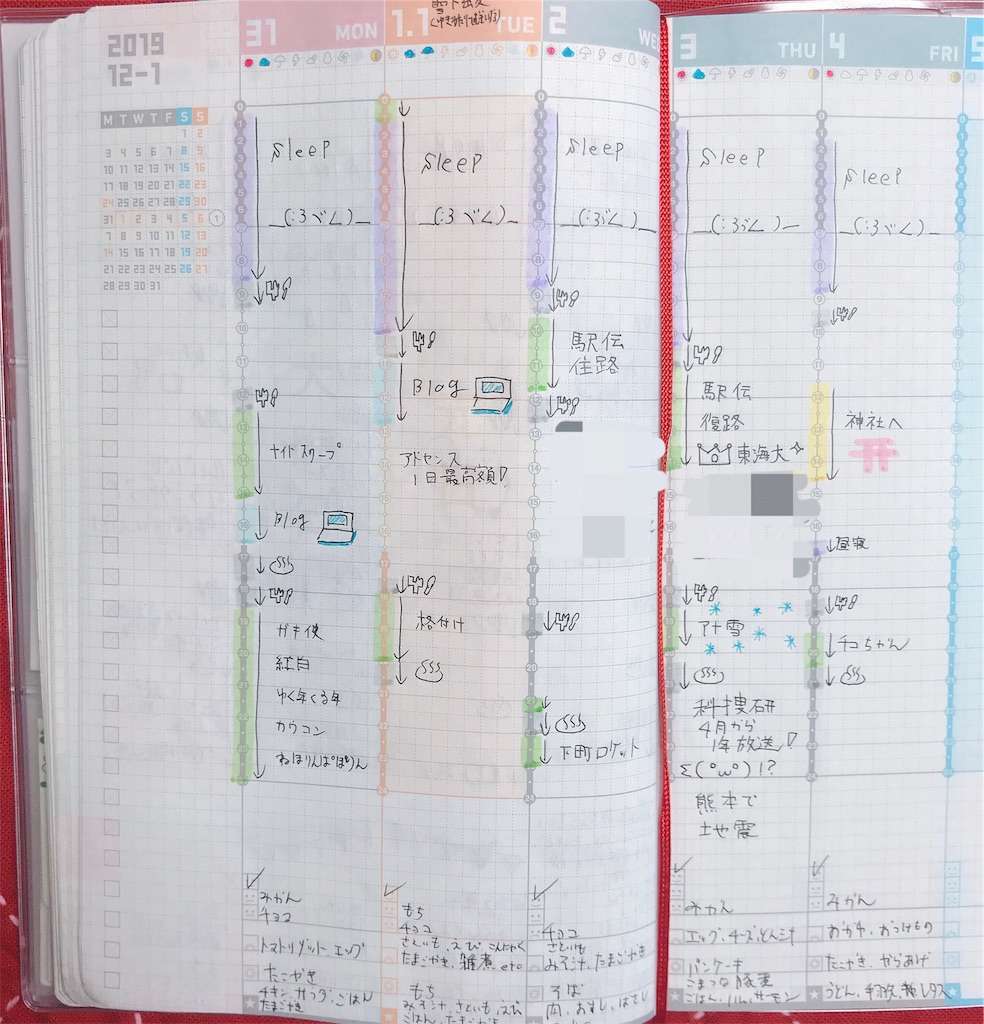 2019
12-1
M T W T F S S
1 2
3 4 5 6 7 8 9
10 11 12 13 14 15 16
17 18 19 20 21 22 23
24 25 26 27 28 29 30
31 1 2 3 4 5 6
7 8 9 10 11 12 13
14 15 16 17 18 19 20
21 22 23 24 25 26 27
28 29 30 31
31 MON
Sleep
_(:3 ゞ∠)_
ナイトスクープ
Blog
ガキ使
紅白
ゆく年くる年
カウコン
ねほりんぱほりん
みかん
チョコ
トマトリゾット、エッグ
たこやき
チキン、サラダ、ごはん
たまごやき
1.1 TUE
Sleep
_(:3 ゞ∠)_
Blog
アドセンス
1日最高額!
格付け
もち
チョコ
さといも、えび、こんにゃく
たまごやき、雑煮、etc
もち
みそ汁、さといも、えび
2 WE
Sleep
_(:3 ゞ∠)_
駅伝
往路
下町ロケット
チョコ
さといも
みそ汁、たまごやき
そば
3 THU
Sleep
_(:3 ゞ∠)_
駅伝
復路
東海大
アナ雪
科捜研
4月から
1年放送!
Σ(°ω°)!?
熊本で
地震
みかん
エッグ、チーズ、とん汁
パンケーキ
4 FRI
Sleep
_(:3 ゞ∠)_
神社へ
昼寝
チコちゃん
みかん
おかゆ、おつけもの
たこやき、からあげ